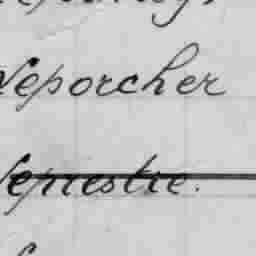 Leporcher
Leprestre.